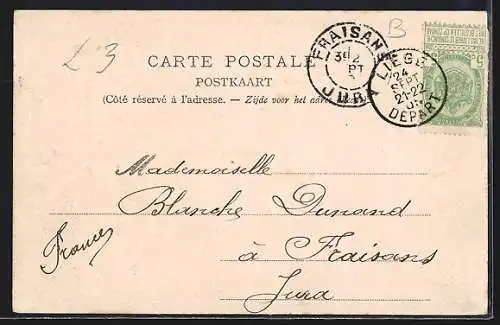 L3
B
CARTE POSTALE
POSTKAART
(Côté réservé à l'adresse. — Zijde voor het
FRAISANS
JURA
LIEGE
24
SEPT
21-22
DEPART
Mademoiselle
Blanche Dunand
à Fraisans
Jura
France